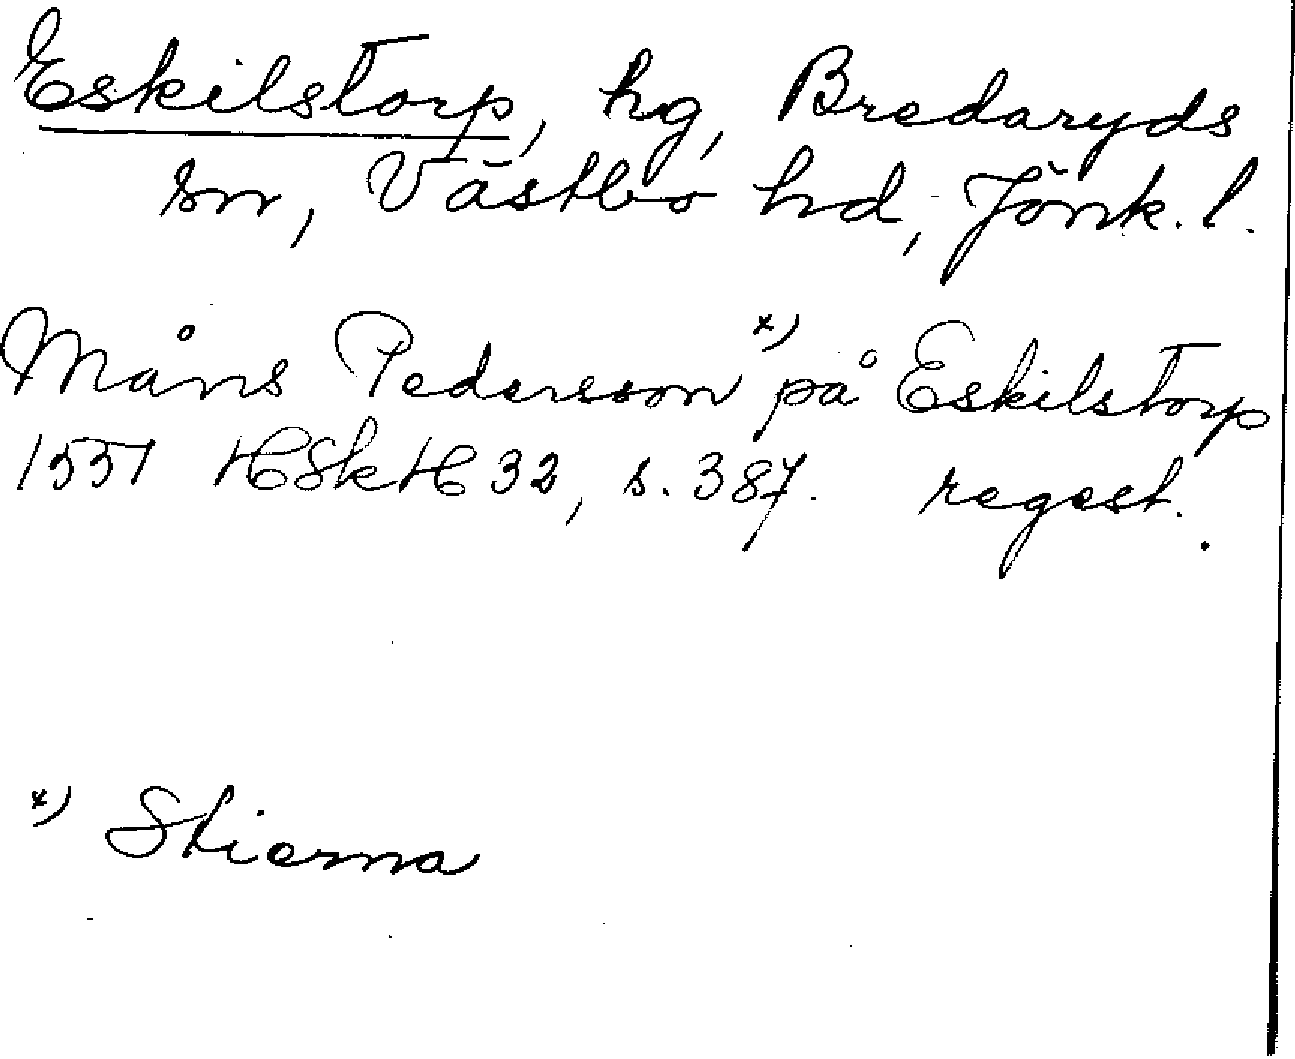 Eskilstorp, hg, Bredaryds
sn, Västbo hd, Jönk. l.
Måns Pedersson *) på Eskilstorp
1551 HSkH 32, s. 387. regest.
*) Stierna